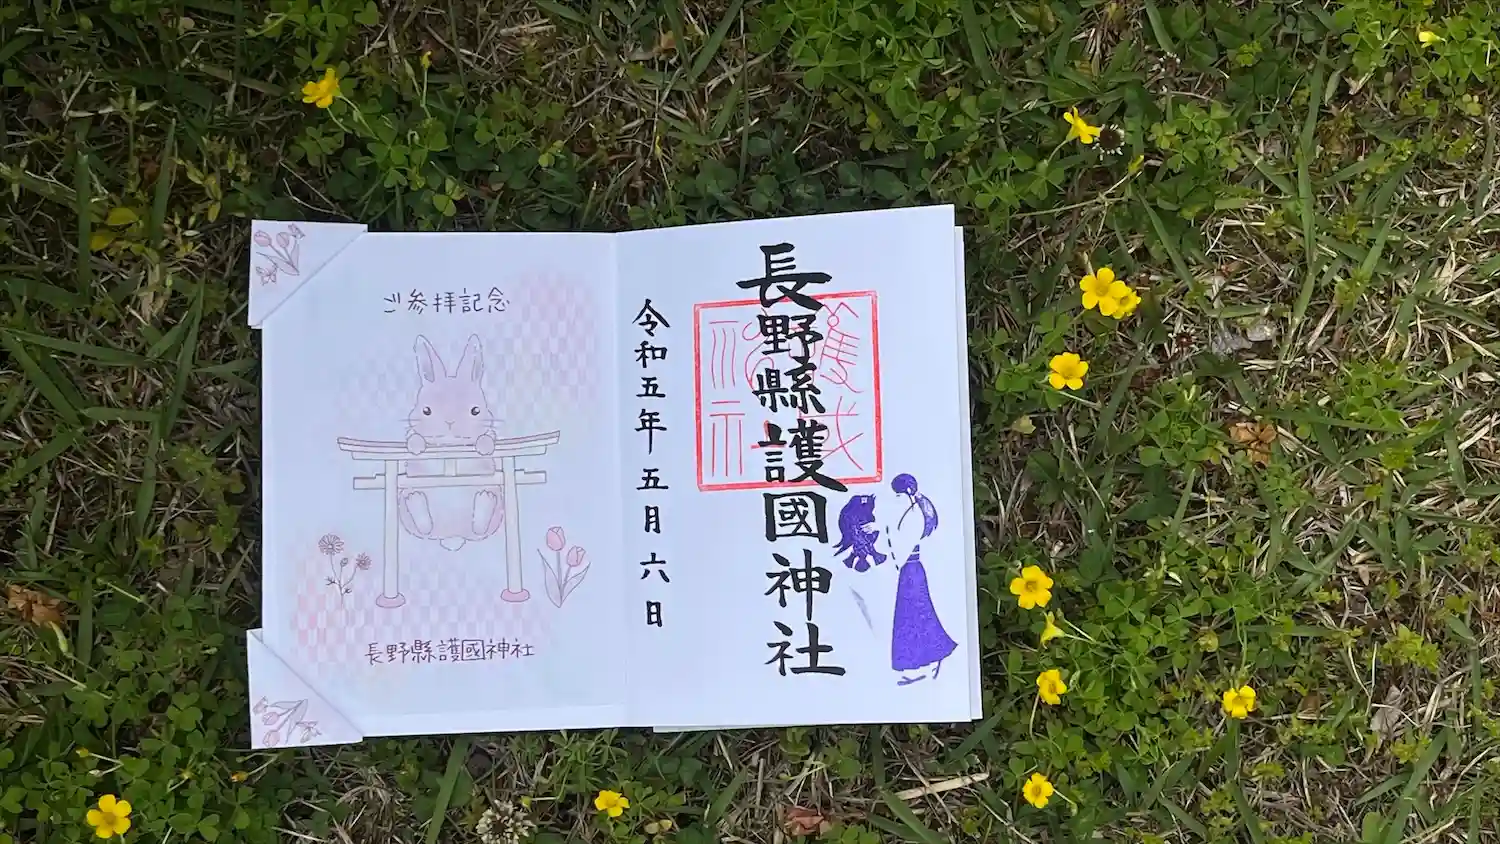 ご参拝記念
長野縣護國神社
長野縣護國神社
令和五年五月六日